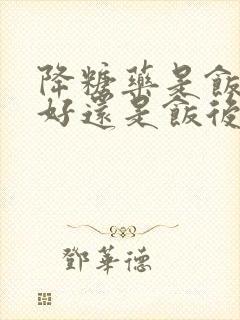 降糖藥是飯
好還是飯後
鄧華德